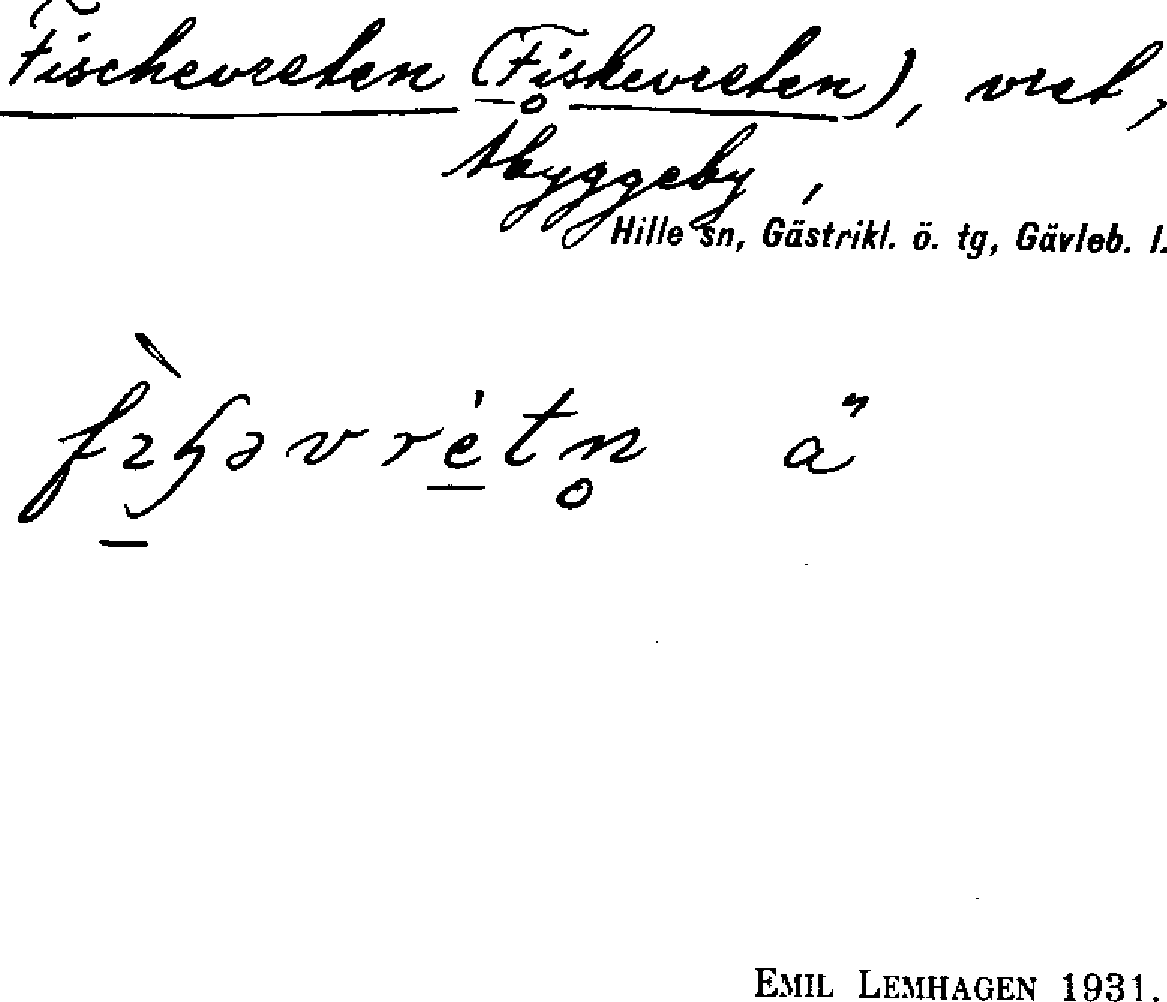 Fischevreten (Fiskevreten), vret,
Åbyggeby,
Hille sn, Gästrikl. ö. tg, Gävleb. l.
EMIL LEMHAGEN 1931.